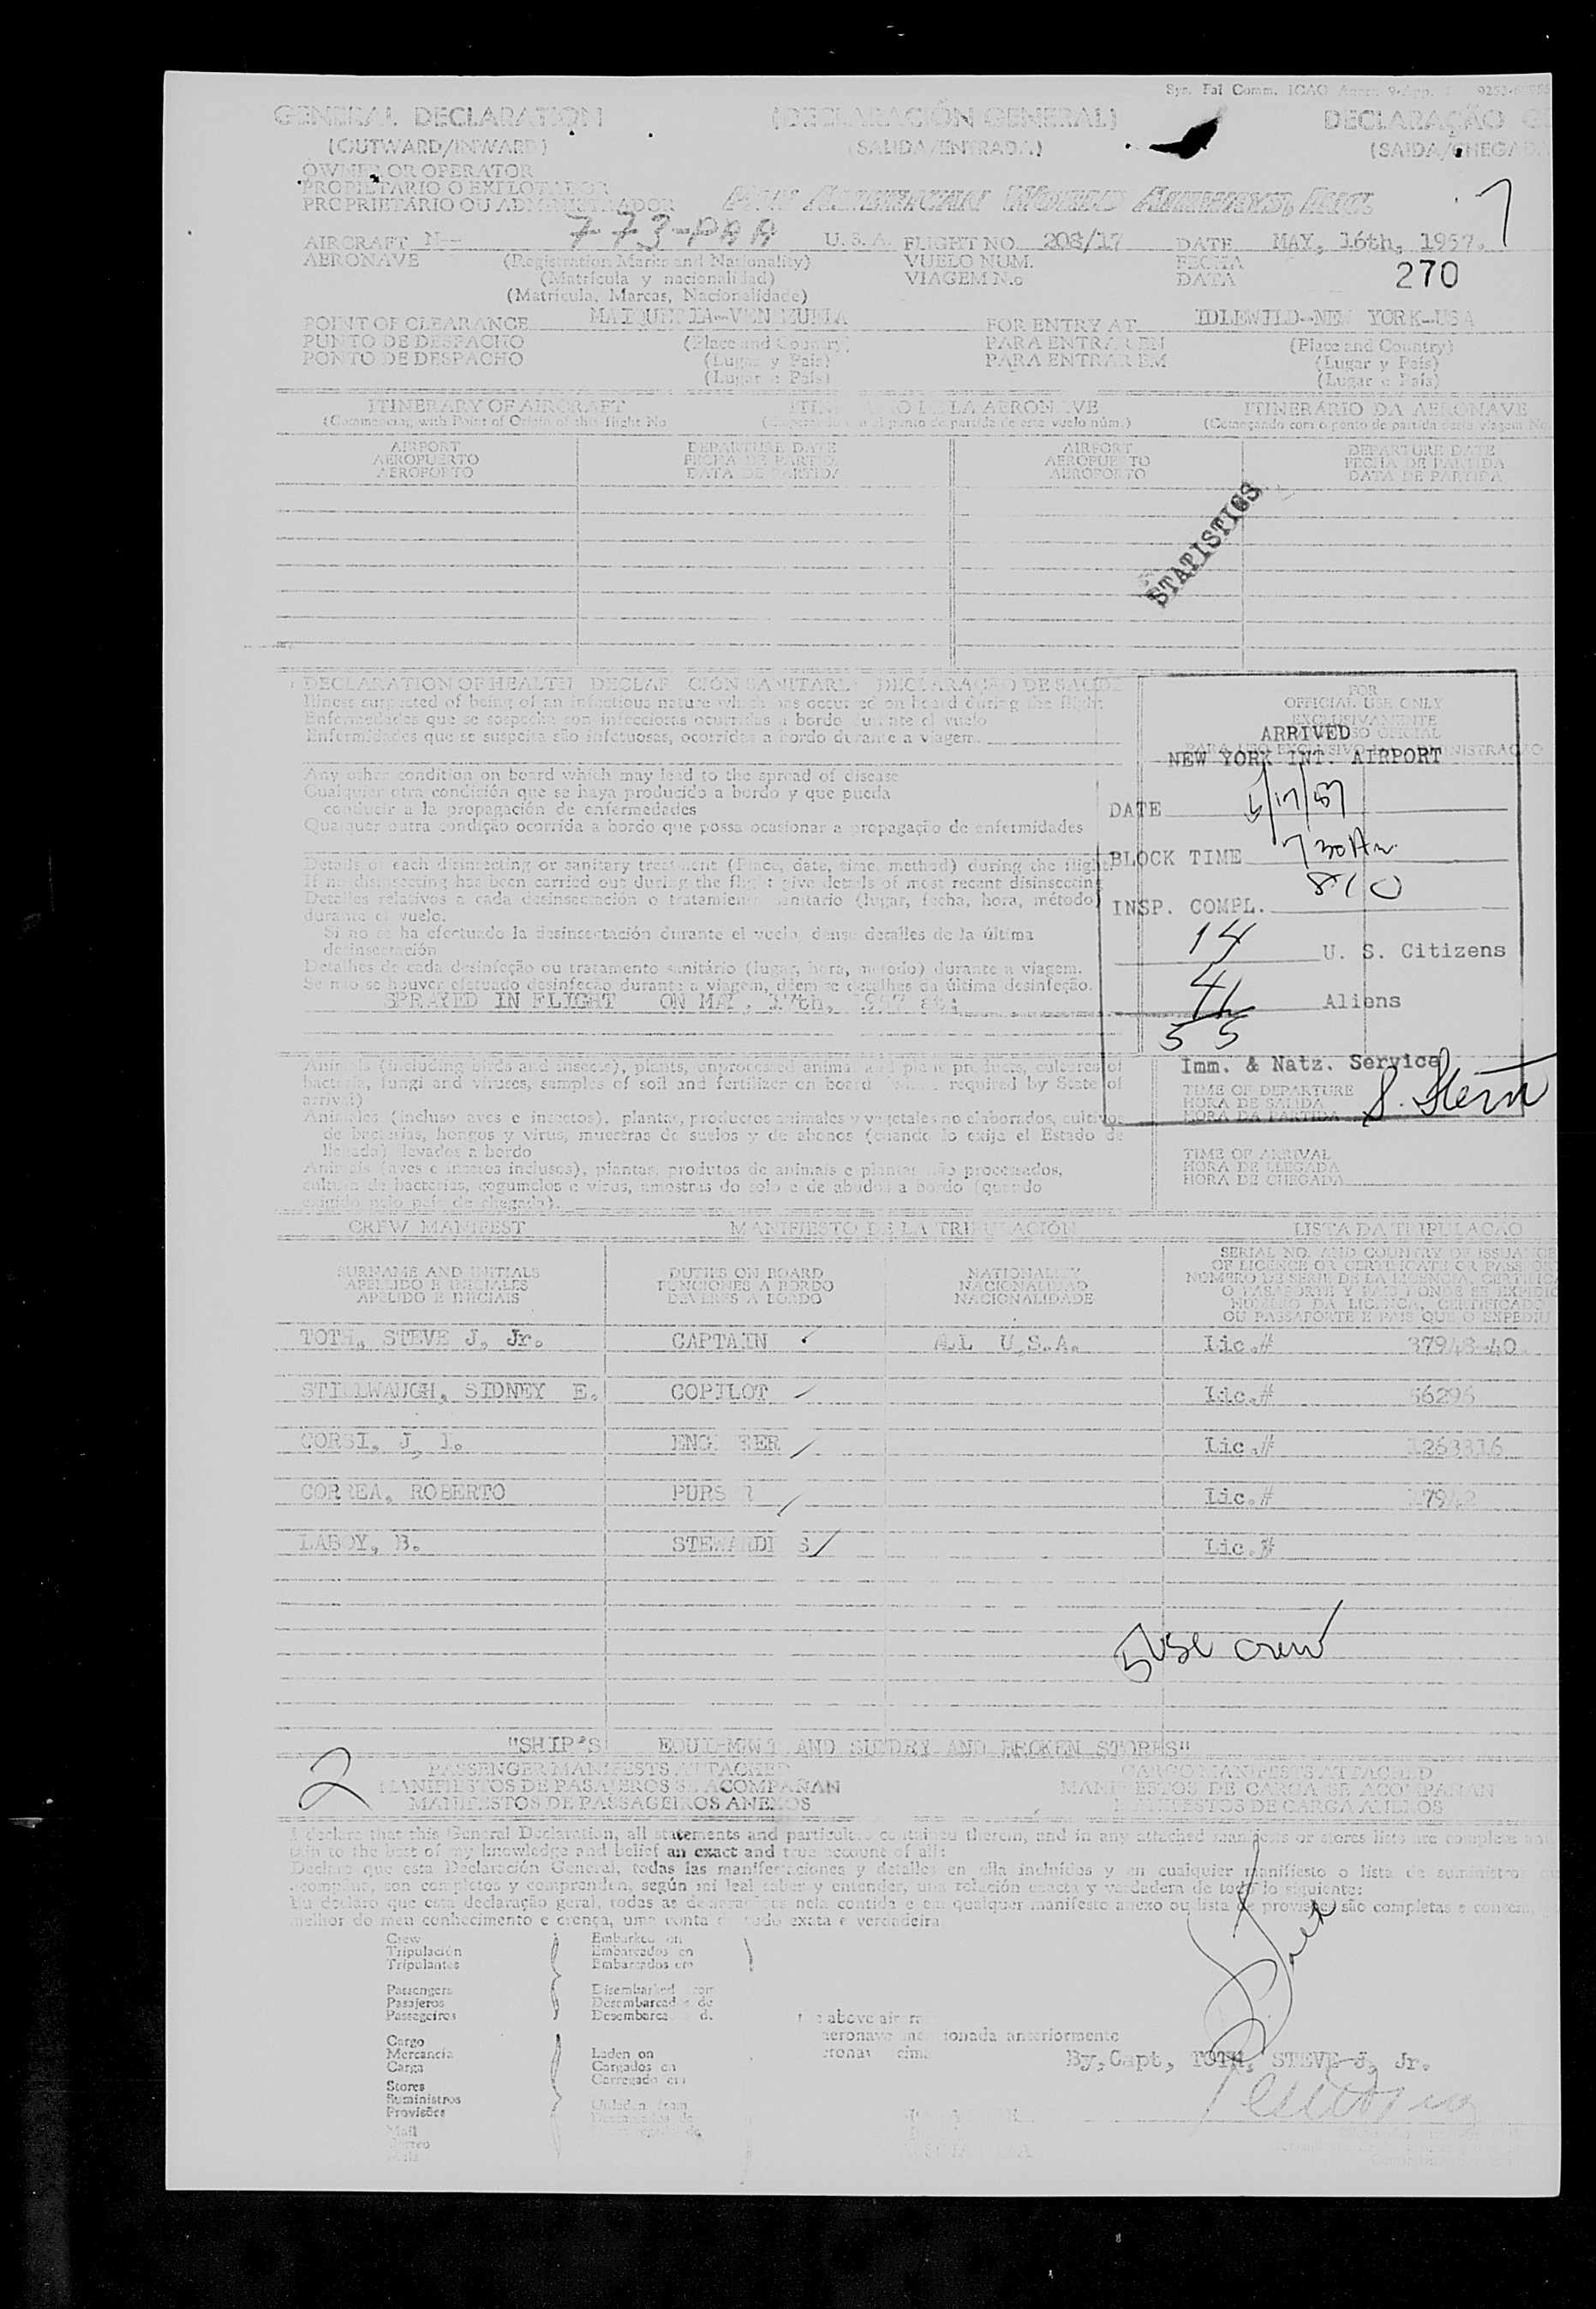 Sys. Fal Comm. ICAO Annex 9-App. 9253-
GENERAL DECLARATION (DECLARACIÓN GENERAL) DECLARAÇÃO
(OUTWARD/INWARD) (SALIDA/ENTRADA) (SAIDA/CHEGADA
OWNER OR OPERATOR
PROPIETARIO O EXPLOTADOR
PROPRIETÁRIO OU ADMINISTRADOR PAN AMERICAN WORLD AIRWAYS, INC. 7
AIRCRAFT N-- 773-PAA U. S. A. FLIGHT NO. 208/17 DATE MAY, 16th, 1957.
AERONAVE (Registration Marks and Nationality) VUELO NUM. FECHA
(Matrícula y nacionalidad) VIAGEM N.o DATA 270
(Matrícula, Marcas, Nacionalidade)
POINT OF CLEARANCE MAIQUETIA--VENEZUELA FOR ENTRY AT IDLEWILD--NEW YORK--USA
PUNTO DE DESPACHO (Place and Country) PARA ENTRAR EN (Place and Country)
PONTO DE DESPACHO (Lugar y País) PARA ENTRAR EM (Lugar y País)
(Lugar e País) (Lugar e País)
ITINERARY OF AIRCRAFT ITINERARIO DE LA AERONAVE ITINERÁRIO DA AERONAVE
(Commencing with Point of Origin of this flight No (Comenzando con el punto de partida de este vuelo núm.) (Começando com o ponto de partida desta viagem No
AIRPORT DEPARTURE DATE AIRPORT DEPARTURE DATE
AEROPUERTO FECHA DE PARTIDA AEROPUERTO FECHA DE PARTIDA
AEROPORTO DATA DE PARTIDA AEROPORTO DATA DE PARTIDA
STATISTICS
DECLARATION OF HEALTH DECLARACIÓN SANITARIA DECLARAÇÃO DE SAÚDE
Illness suspected of being of an infectious nature which has occurred on board during the flight
Enfermedades que se sospecha son infecciosas ocurridas a bordo durante el vuelo
Enfermidades que se suspeita são infetuosas, ocorridas a bordo durante a viagem.
FOR
OFFICIAL USE ONLY
EXCLUSIVAMENTE
USO OFICIAL
PARA USO EXCLUSIVO DA ADMINISTRAÇÃO
ARRIVED
NEW YORK INT. AIRPORT
DATE 5/17/57
BLOCK TIME 730 Am.
INSP. COMPL. 810
14 U. S. Citizens
41 Aliens
55
Imm. & Natz. Service
S. Stern
Any other condition on board which may lead to the spread of disease
Cualquier otra condición que se haya producido a bordo y que pueda
conducir a la propagación de enfermedades
Qualquer outra condição ocorrida a bordo que possa ocasionar a propagação de enfermidades
Details of each disinsecting or sanitary treatment (Place, date, time, method) during the flight.
If no disinsecting has been carried out during the flight give details of most recent disinsecting
Detalles relativos a cada desinsectación o tratamiento sanitario (lugar, fecha, hora, método)
durante el vuelo.
Si no se ha efectuado la desinsectación durante el vuelo, dense detalles de la última
desinsectación
Detalhes de cada desinfeção ou tratamento sanitário (lugar, hora, metodo) durante a viagem.
Se não se houver efetuado desinfeção durante a viagem, dêem se detalhes da última desinfeção.
SPRAYED IN FLIGHT ON MAY, 17th, 1957 at:
Animals (including birds and insects), plants, unprocessed animal and plant products, cultures of
bacteria, fungi and viruses, samples of soil and fertilizer on board (when required by State of
arrival)
Animales (incluso aves e insectos), plantas, productos animales y vegetales no elaborados, cultivos
de bacterias, hongos y virus, muestras de suelos y de abonos (cuando lo exija el Estado de
llegada) llevados a bordo
Animais (aves e insetos inclusos), plantas, produtos de animais e plantas não processados,
cultura de bacterias, cogumelos e virus, amostras do solo e de abudos a bordo (quando
exigido pelo país de chegada).
TIME OF DEPARTURE
HORA DE SALIDA
HORA DA PARTIDA
TIME OF ARRIVAL
HORA DE LLEGADA
HORA DE CHEGADA
CREW MANIFEST MANIFIESTO DE LA TRIPULACIÓN LISTA DA TRIPULACAO
SURNAME AND INITIALS DUTIES ON BOARD NATIONALITY SERIAL NO. AND COUNTRY OF ISSUANCE
APELLIDO E INICIALES FUNCIONES A BORDO NACIONALIDAD OF LICENCE OR CERTIFICATE OR PASSPORT
APELIDO E INICIAIS DEVERES A BORDO NACIONALIDADE NÚMERO DE SERIE DE LA LICENCIA, CERTIFICA
O PASAPORTE Y PAIS DONDE SE EXPIDIO
NÚMERO DA LICENÇA, CERTIFICADO
OU PASSAPORTE E PAIS QUE O EXPEDIU
TOTH, STEVE J, Jr. CAPTAIN ALL U.S.A. Lic.# 37948-40
STILLWAUGH, SIDNEY E. COPILOT Lic.# 56296
CORSI, J, I. ENGINEER Lic.# 1263316
CORREA, ROBERTO PURSER Lic.#
LABOY, B. STEWARDESS Lic.#
5 USC crew
"SHIP'S EQUIPMENT AND SUNDRY AND BROKEN STORES"
2
PASSENGER MANIFESTS ATTACHED CARGO MANIFESTS ATTACHED
MANIFIESTOS DE PASAJEROS SE ACOMPAÑAN MANIFIESTOS DE CARGA SE ACOMPAÑAN
MANIFESTOS DE PASSAGEIROS ANEXOS MANIFESTOS DE CARGA ANEXOS
I declare that this General Declaration, all statements and particulars contained therein, and in any attached manifests or stores lists are complete
to the best of my knowledge and belief an exact and true account of all:
Declaro que esta Declaración General, todas las manifestaciones y detalles en ella incluídos y en cualquier manifiesto o lista de suministros
acompañe, son completos y comprenden, según mi leal saber y entender, una relación exacta y verdadera de todo lo siguiente:
Eu declaro que esta declaração geral, todas as nela contida e em qualquer manifesto anexo ou lista de provisões são completas e
melhor do meu conhecimento e crença, uma conta de tudo exata e verdadeira
Crew Embarked on
Tripulación Embarcados en
Tripulantes Embarcados em
Passengers Disembarked from
Pasajeros Desembarcados de
Passageiros Desembarcados de
the above aircraft
aeronave mencionada anteriormente
Cargo
Mercancía Laden on
Carga Cargados en
Carregado em
Stores
Suministros
Provisões Unladen from
Mail
Correo
By, Capt, TOTH, STEVE J, Jr.